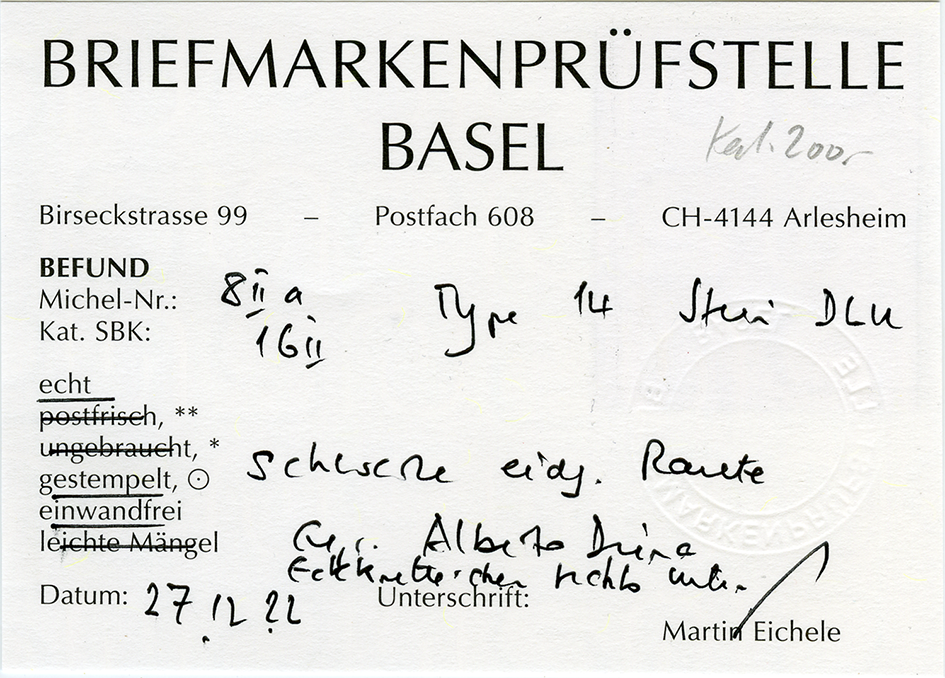 BRIEFMARKENPRÜFSTELLE
BASEL
Kat. 200.-
Birseckstrasse 99 – Postfach 608 – CH-4144 Arlesheim
BEFUND
Michel-Nr.: 8 II a Type 14 Stein
Kat. SBK: 16 II
echt
postfrisch, **
ungebraucht, *
gestempelt, ⊙ schwarze eidg. Raute
einwandfrei
leichte Mängel Alberto Diena
rechts
Datum: 27.12.22 Unterschrift:
Martin Eichele